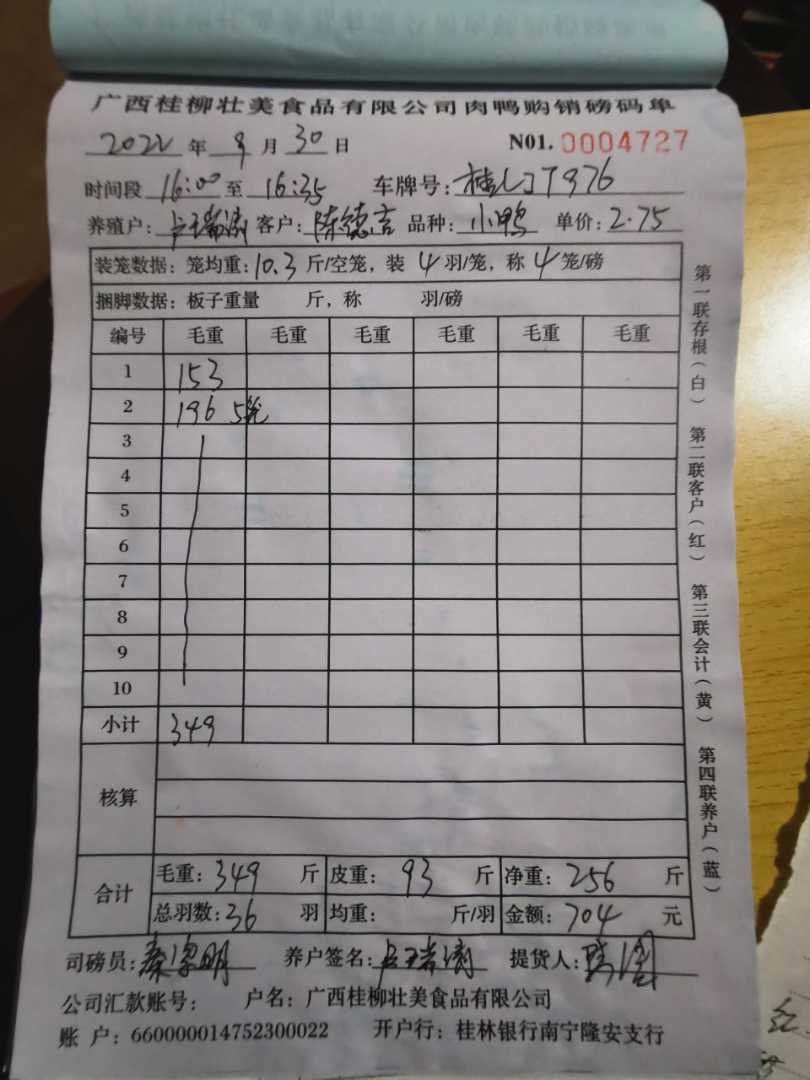 广西桂柳壮美食品有限公司肉鸭购销磅码单
2022年9月30日 N01. 0004727
时间段 16:00 至 16:35 车牌号:
养殖户: 卢瑞涛 客户: 陈德吉 品种: 小鸭 单价: 2.75
装笼数据: 笼均重: 10.3 斤/空笼, 装 4 羽/笼, 称 4 笼/磅
捆脚数据: 板子重量 斤, 称 羽/磅
编号 毛重 毛重 毛重 毛重 毛重 毛重
1 153
2 196 5笼
3
4
5
6
7
8
9
10
小计 349
核算
合计 毛重: 349 斤 皮重: 93 斤 净重: 256 斤
总羽数: 36 羽 均重: 斤/羽 金额: 704 元
司磅员: 养户签名: 卢瑞涛 提货人:
公司汇款账号: 户名: 广西桂柳壮美食品有限公司
账 户: 660000014752300022 开户行: 桂林银行南宁隆安支行
第一联存根(白) 第二联客户(红) 第三联会计(黄) 第四联养户(蓝)